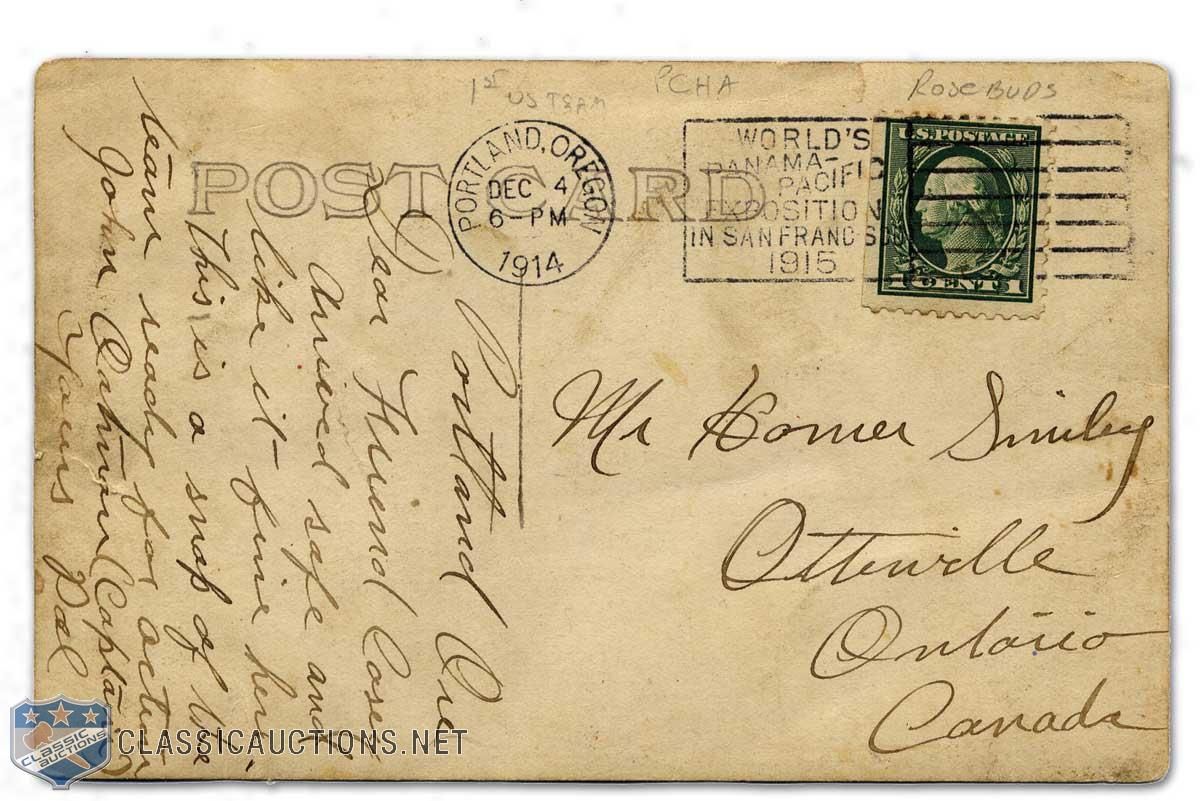 1ST US TEAM PCHA ROSEBUDS
POST CARD
PORTLAND, OREGON
DEC 4
6-PM
1914
WORLD'S
PANAMA-
PACIFIC
EXPOSITION
IN SAN FRANCISCO
1915
U.S. POSTAGE
1 CENT 1
Portland Ore
Dear Friend
Arrived safe and
like it fine here
This is a snap of the
team ready for action
John (Captain)
Yours Pal
Mr Homer Smiley
Otterville
Ontario
Canada
CLASSIC
AUCTIONS
CLASSICAUCTIONS.NET